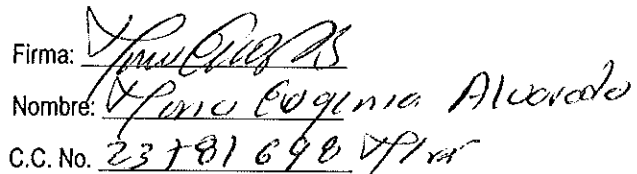 Firma:
Nombre: Maria Eugenia Alvarado
C.C. No. 23781698